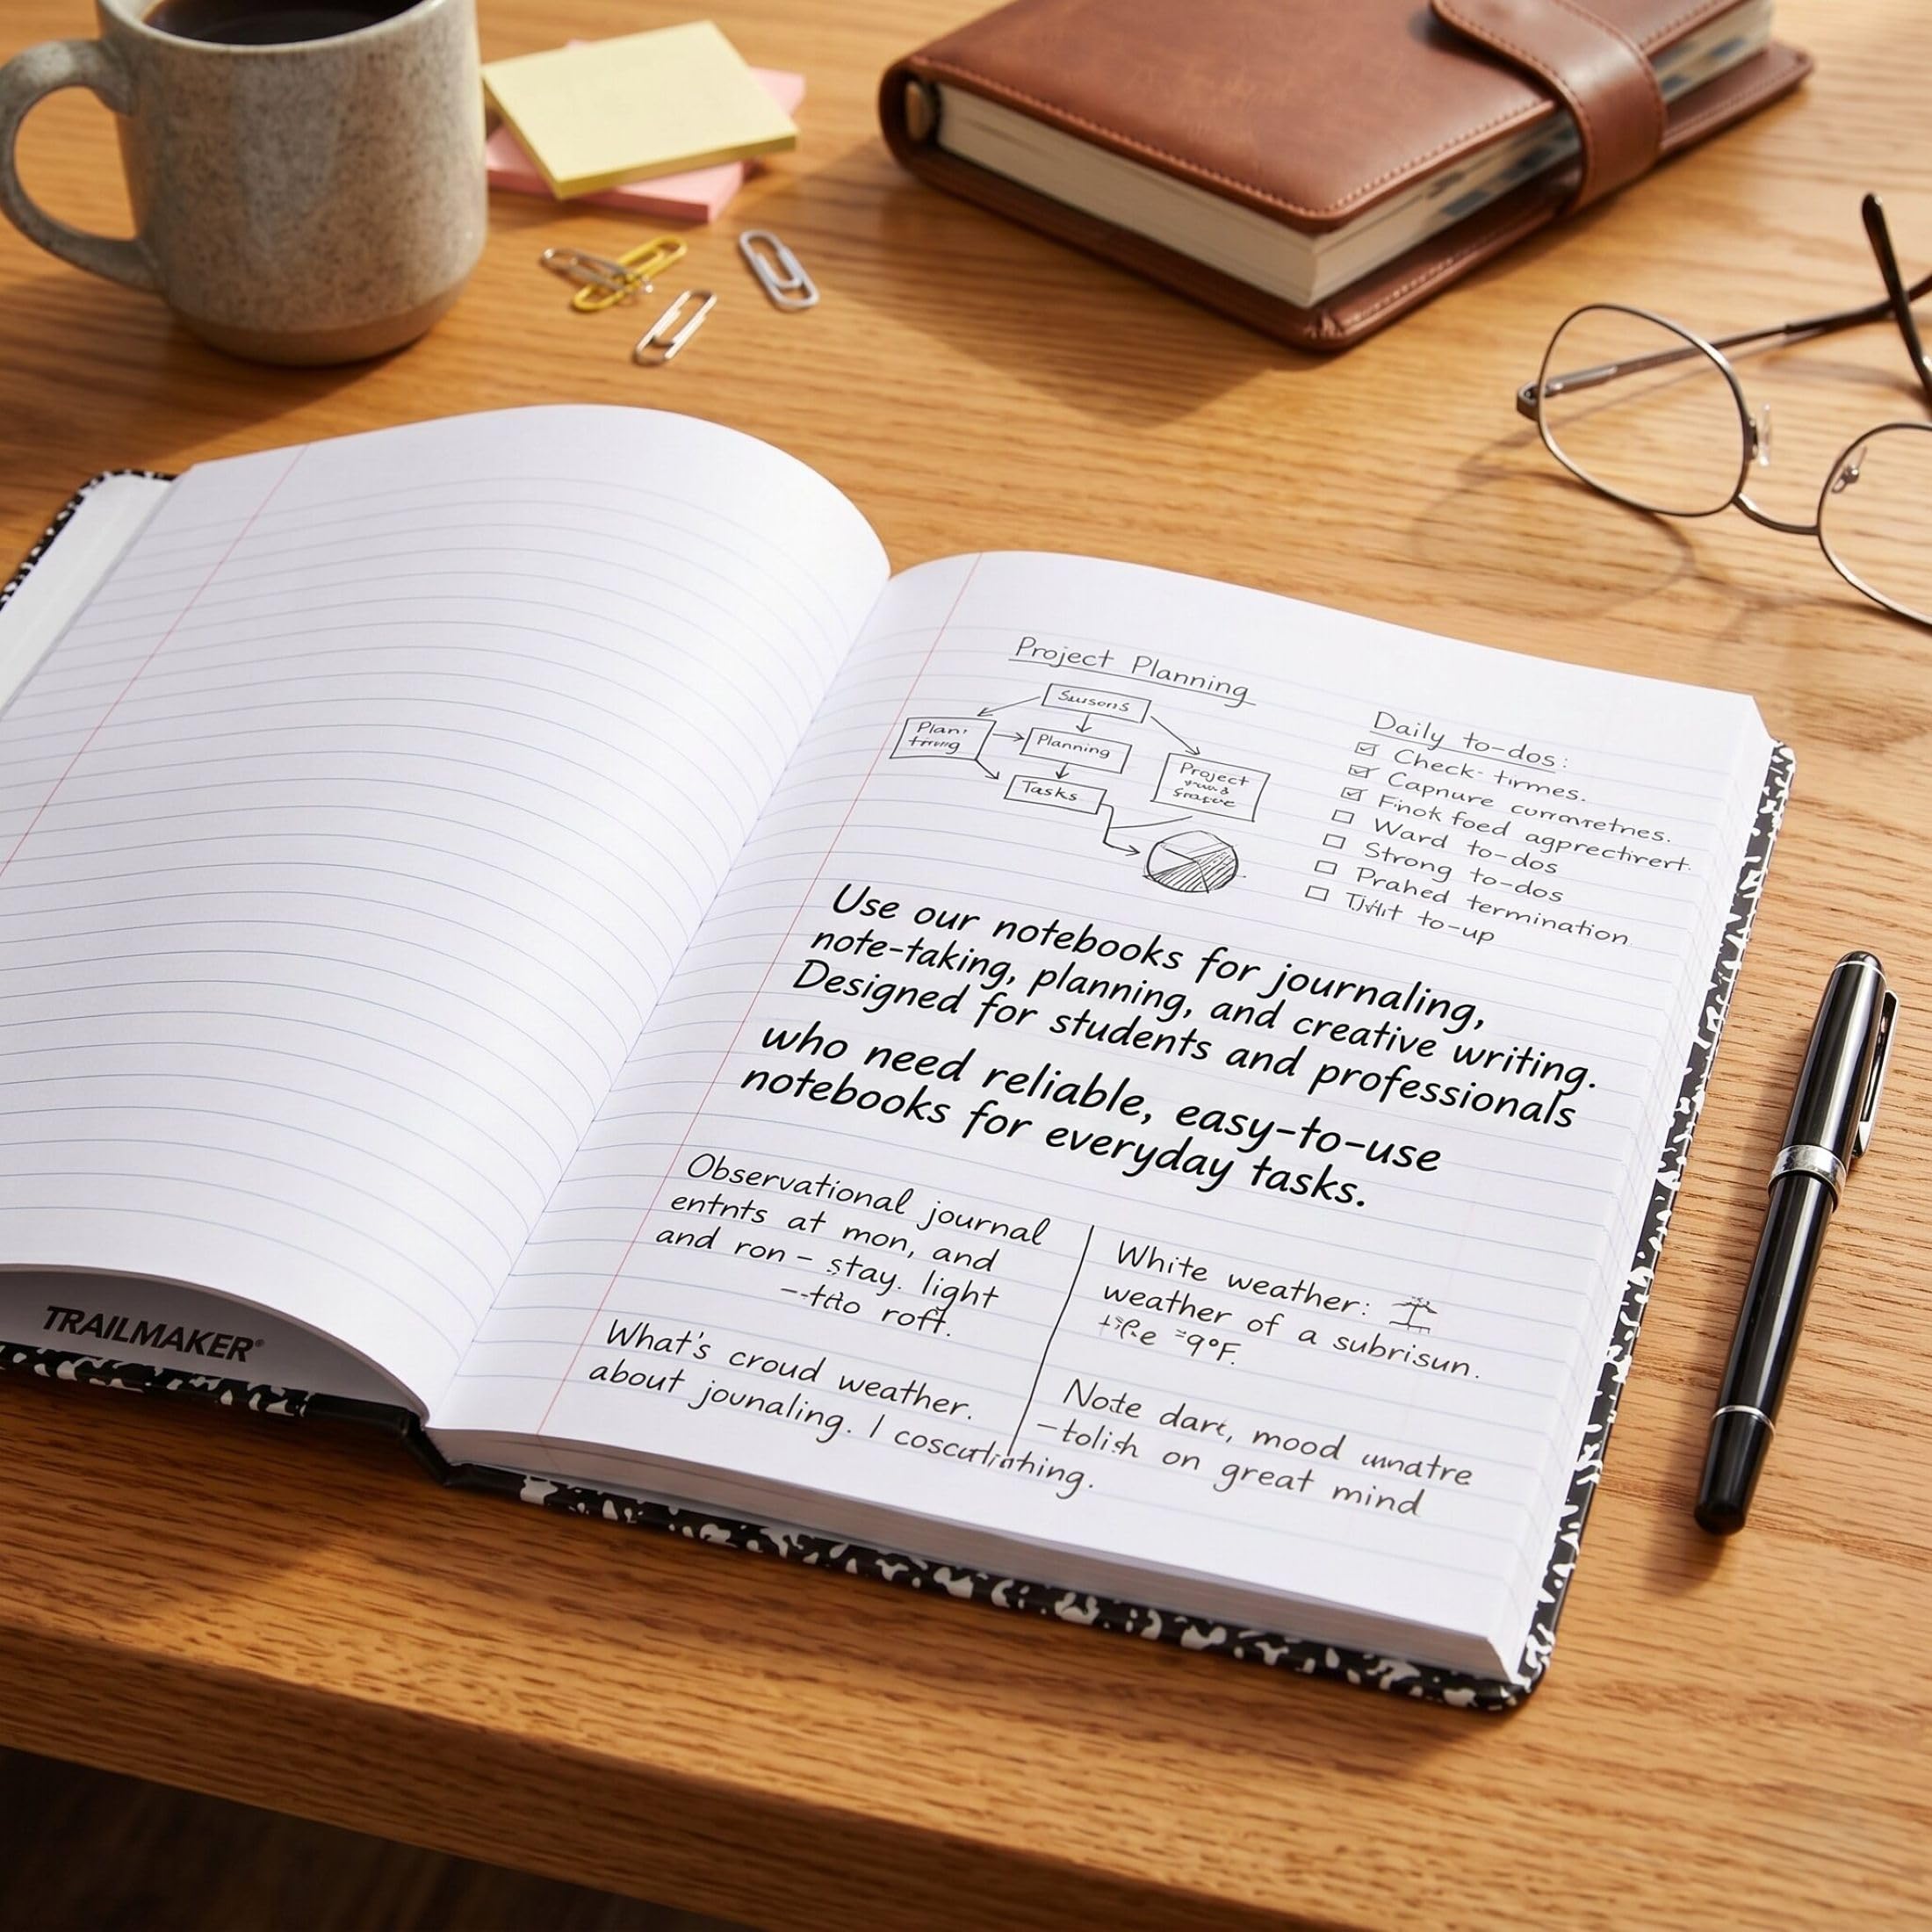 Project Planning
Planning
Tasks
Project
Daily to-dos:
Check-
Ward to-dos
Strong to-dos
Prahed termination
to-up
Use our notebooks for journaling,
note-taking, planning, and creative writing.
Designed for students and professionals
who need reliable, easy-to-use
notebooks for everyday tasks.
Observational journal
entnts at mon, and
and ron - stay. light
roft.
What's croud weather.
about jounaling. I
White weather:
weather of a subrisun.
Note dart, mood
on great mind
TRAILMAKER®